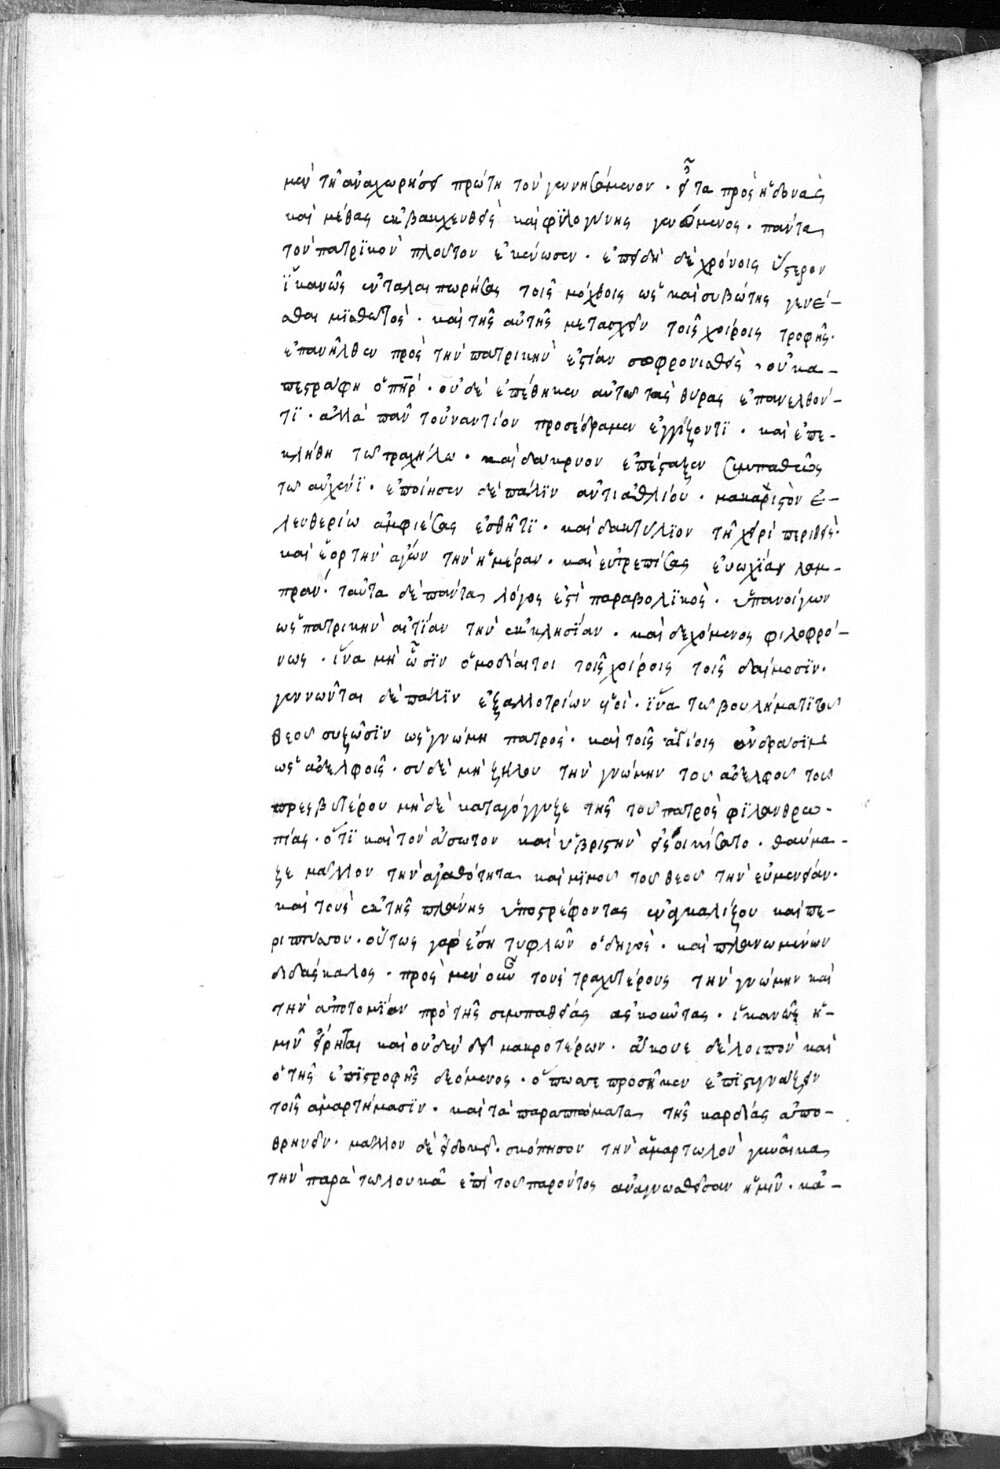 μεν τῆ ἀναχωρήσει πρώτη τὸν γεννησάμενον. εἶτα πρὸς ἡδονὰς
καὶ μέθας ἐκβακχευθεὶς καὶ φϊλογύνης γενόμενος. πάντα
τὸν πατρϊκὸν πλοῦτον ἐκένωσεν. ἐπειδὴ δὲ χρόνοις ὕστερον
ἱκανῶς ἐνταλαιπωρήσας τοῖς μόχθοις ὡς καὶ συβώτης γενέ-
σθαι μϊσθωτὸς. καὶ τῆς αὐτῆς μετασχεῖν τοῖς χοίροις τροφῆς.
ἐπανῆλθεν πρὸς τὴν πατρικὴν ἑστίαν σωφρονισθεὶς, οὐκ ἀ-
πεστράφη ὁ πὴρ. οὐδὲ ἐπέθηκεν αὐτῶ τὰς θύρας ἐπανελθόν-
τϊ. ἀλλὰ πᾶν τοὐναντίον προσέδραμεν ἐγγίζοντϊ. καὶ ἐπε-
κλήθη τῶ τραχήλω. καὶ δάκρυον ἐπέσταξεν συμπαθείας
τῶ αὐχένϊ. ἐποίησεν δὲ πάλϊν ἀντὶ ἀθλίου. μακαριστὸν ἐ-
λευθερίω ἀμφιέσας ἐσθῆτϊ. καὶ δακτυλϊον τῆ χειρὶ περιθεὶς.
καὶ ἑορτὴν ἄγων τὴν ἡμέραν. καὶ εὐτρεπίσας εὐωχίαν λαμ-
πράν. ταῦτα δὲ πάντα λόγος ἐστὶ παραβολϊκὸς. ὑπανοίγων
ὡς πατρικὴν αἰτίαν τὴν ἐκκλησΐαν. καὶ δεχόμενος φιλοφρό-
νως. ἵνα μὴ ὦσϊν ὁμοδίαιτοι τοῖς χοίροις τοῖς δαίμοσϊν.
γεννῶνται δὲ πάλϊν ἐξ ἀλλοτρίων υἱοὶ. ἵνα τῶ βουλήματϊ τοῦ
θεοῦ συζῶσϊν ὡς γνώμη πατρὸς. καὶ τοῖς ἁγίοις ἀνδράσϊν
ὡς ἀδελφοῖς. σὺ δὲ μὴ ζήλου τὴν γνώμην τοῦ ἀδελφοῦ τοῦ
πρεσβυτέρου μηδὲ καταγόγγυζε τῆς τοῦ πατρὸς φϊλανθρω-
πίας. ὅτϊ καὶ τὸν ἄσωτον καὶ ὑβριστὴν εἰσοικίσατο. θαύμα-
ζε μᾶλλον τὴν ἀγαθότητα καὶ μϊμοῦ τοῦ θεοῦ τὴν εὐμενείαν.
καὶ τοὺς ἐκ τῆς πλάνης ὑποστρέφοντας ἐναγκαλίζου καὶ πε-
ριπτύσσου. οὕτως γὰρ ἔση τυφλῶν ὁδηγὸς. καὶ πλανωμένων
διδάσκαλος. πρὸς μὲν οὖν τοὺς τραχυτέρους τὴν γνώμην καὶ
τὴν ἀποτομΐαν πρὸ τῆς συμπαθείας ἀσκοῦντας. ἱκανῶς ἡ-
μῖν εἴρηται καὶ οὐδὲν δεῖ μακροτέρων. ἄκουε δὲ λοιπὸν καὶ
ὁ τῆς ἐπϊστροφῆς δεόμενος. ὅπως τε προσῆκεν ἐπϊστυγνάζειν
τοῖς ἁμαρτήμασϊν. καὶ τὰ παραπτώματα τῆς καρδίας ἀπο-
θρηνεῖν. μᾶλλον δὲ εἰ δοκεῖ. σκόπησον τὴν ἁμαρτωλὸν γυναῖκα
τὴν παρὰ τῶ λουκᾶ ἐπὶ τοῦ παρόντος ἀναγνωσθεῖσαν ἡμῖν. κἂ-